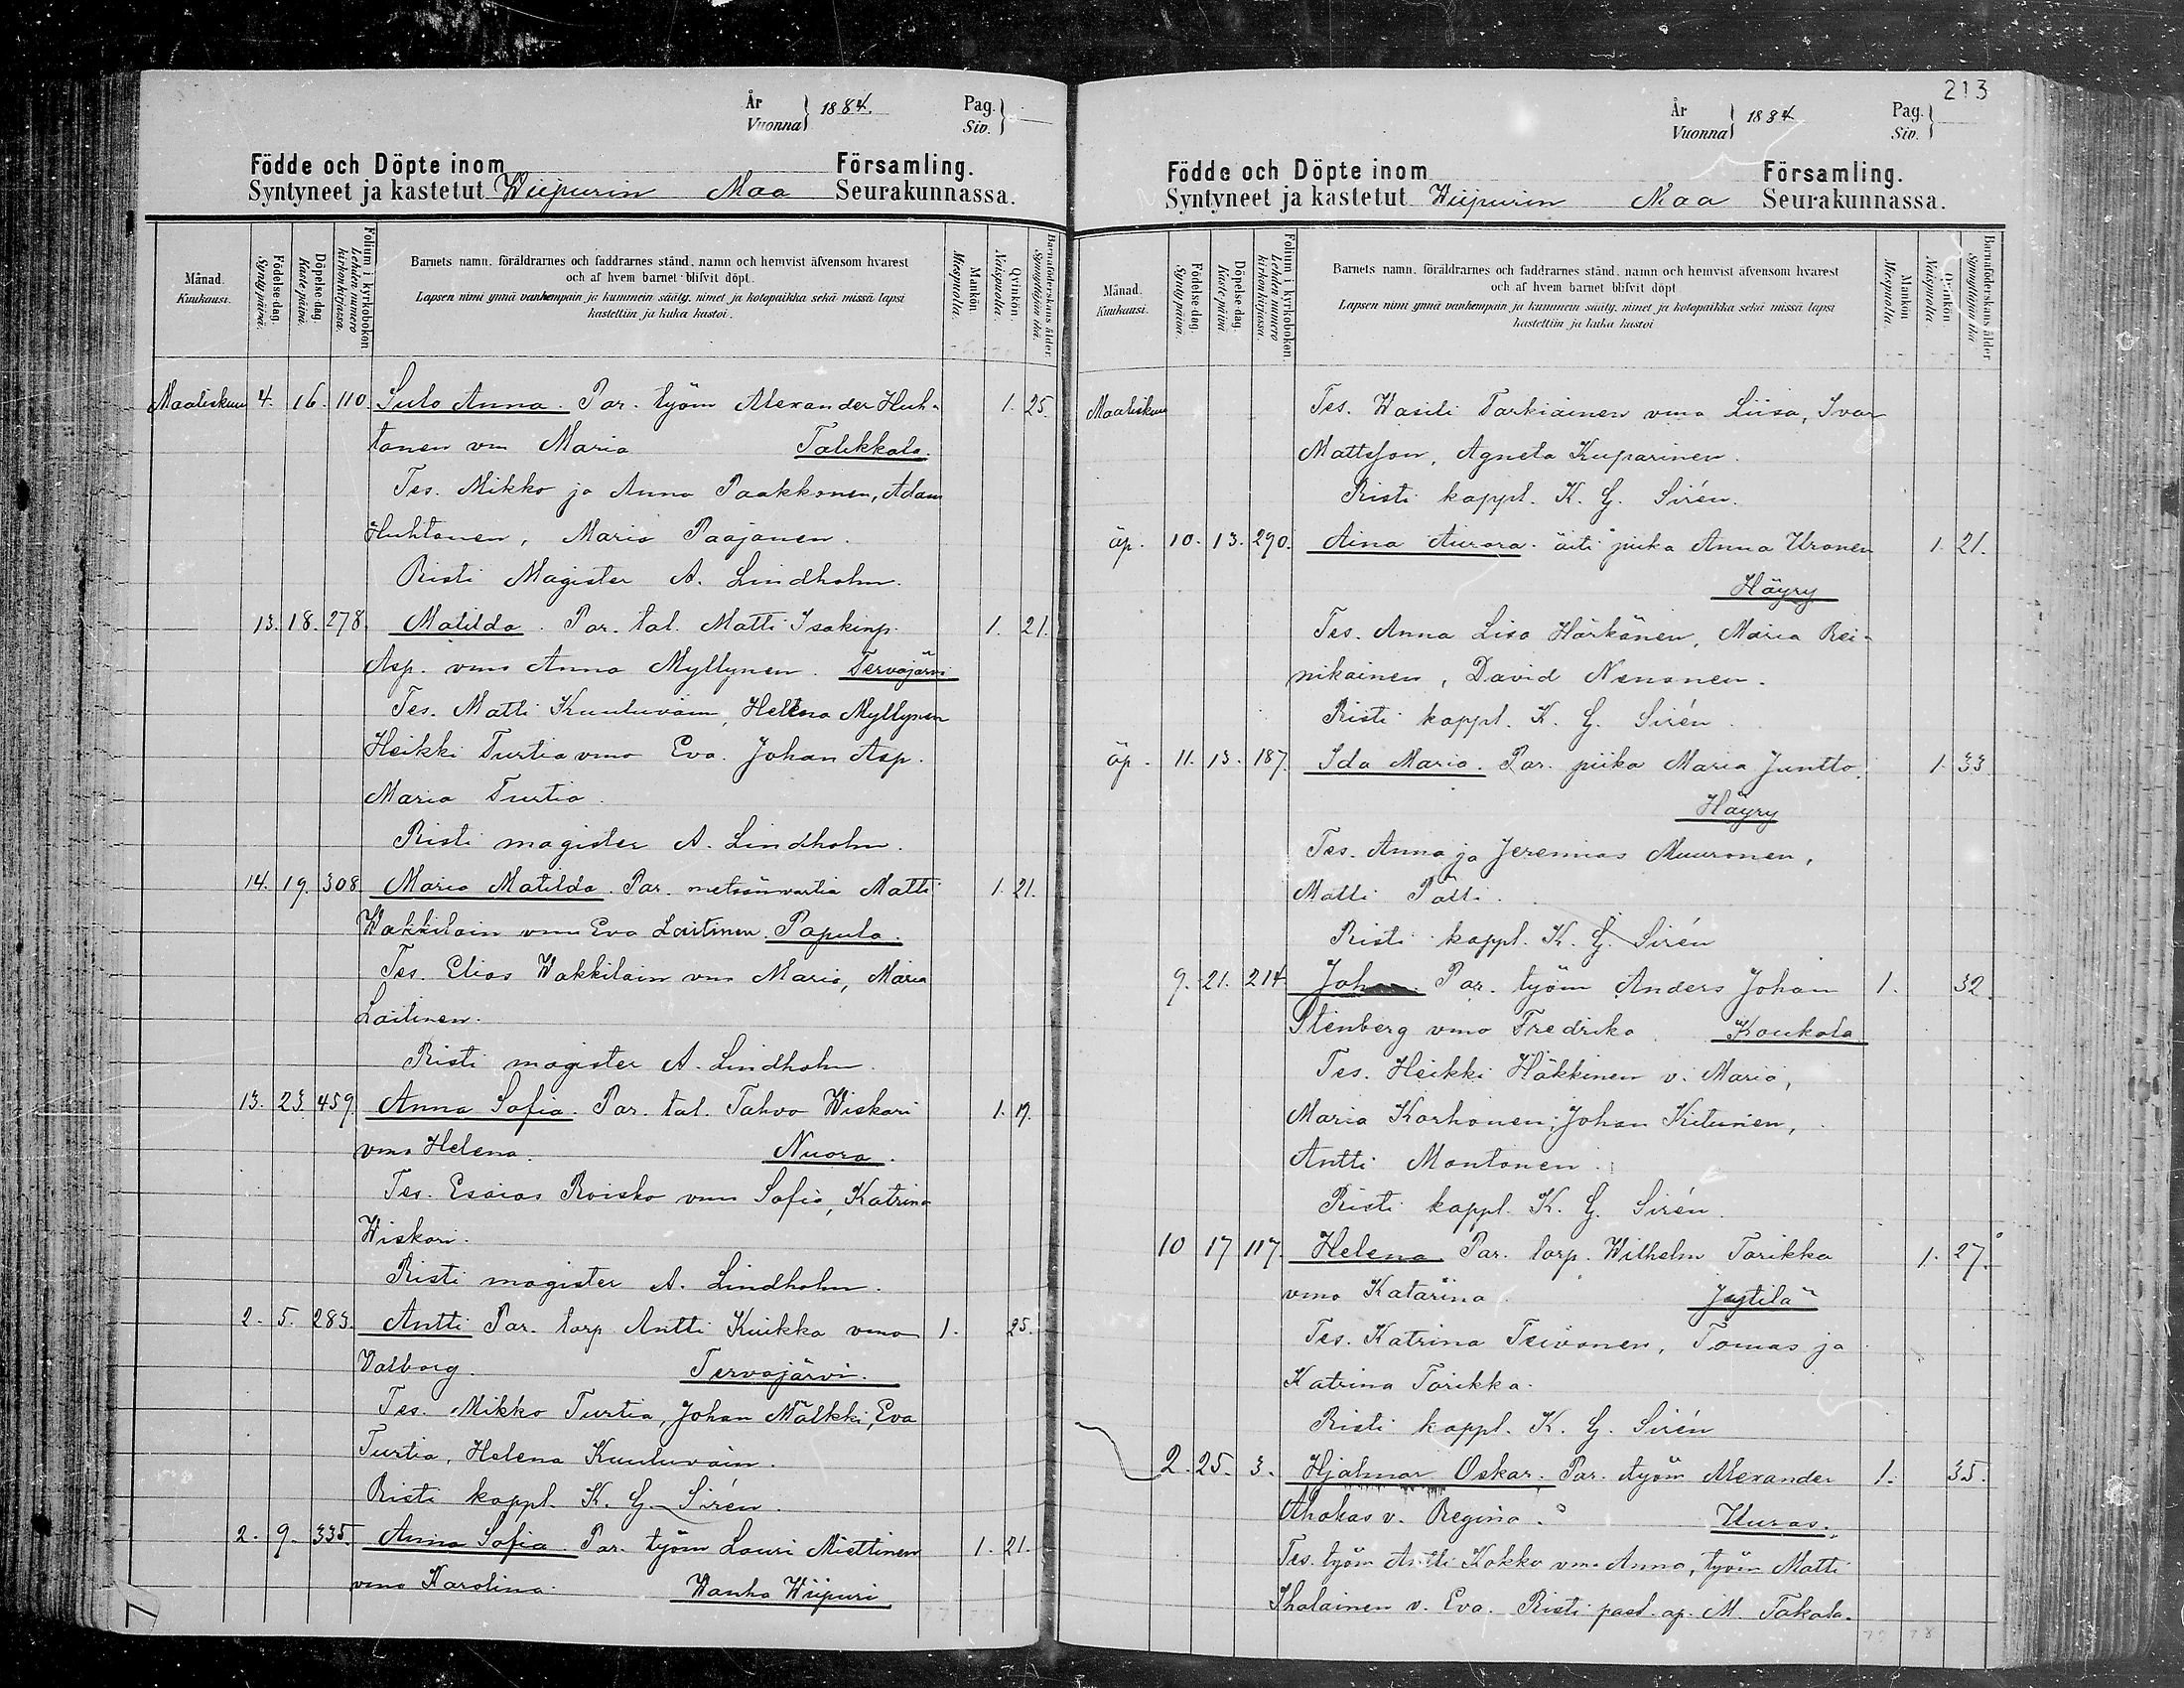 År
Vuonna } 1884.
Pag.
Siv. }
Födde och Döpte inom Församling.
Syntyneet ja kastetut Wiipurin Maa Seurakunnassa.
Månad.
Kuukausi.
Födelse-dag.
Synty päivä.
Döpelse-dag.
Kaste päivä.
Folium i kyrkoboken
Lehden numero kirkonkirjassa.
Barnets namn, föräldrarnes och faddrarnes stånd, namn och hemvist äfvensom hvarest
och af hvem barnet blifvit döpt.
Lapsen nimi ynnä vanhempain ja kummein sääty, nimet ja kotopaikka sekä missä lapsi
kastettiin ja kuka kastoi.
Mankön.
Miespuolta.
Qvinkön.
Naispuolta.
Barnaföderskans ålder.
Synnyttäjän ikä.
Maaliskuu 4. 16. 110. Sulo Anna. Par. työm Alexander Huh- 1. 25.
tanen vm Maria Talikkala.
Tes. Mikko ja Anna Paakkonen, Adam
Huhtanen, Maria Paajanen.
Risti Magister A. Lindholm.
13. 18. 278. Matilda. Par. tal. Matti Isakinp. 1. 21.
Asp. vmo Anna Myllynen. Tervajärvi
Tes. Matti Kuuluvain, Helena Myllynen
Heikki Turtia vmo Eva. Johan Asp.
Maria Turtia.
Risti magister A. Lindholm.
14. 19. 308 Maria Matilda. Par. metsänvartia Matti 1. 21.
Wakkilain vmo Eva Laitinen. Papula.
Tes. Elias Wakkilain vmo Maria, Maria
Laitinen.
Risti magister A. Lindholm.
13. 23. 459. Anna Sofia. Par. tal. Tahvo Wiskari 1. 19.
vmo Helena. Nuora.
Tes. Esaias Roisko vmo Sofia, Katrina
Wiskari.
Risti magister A. Lindholm.
2. 5. 283. Antti Par. torp Antti Kuikka vmo 1. 25.
Valborg. Tervajärvi.
Tes. Mikko Turtia, Johan Mälkki, Eva
Turtia, Helena Kuuluvain.
Risti kappl. K. G. Sirén.
2. 9. 335. Anna Sofia. Par. työm Lauri Miettinen 1. 21.
vmo Karolina. Wanha Wiipuri
213
År
Vuonna } 1884
Pag.
Siv. }
Födde och Döpte inom Församling.
Syntyneet ja kastetut Wiipurin Maa Seurakunnassa.
Månad.
Kuukausi.
Födelse-dag.
Synty päivä.
Döpelse-dag.
Kaste päivä.
Folium i kyrkoboken.
Lehden numero kirkonkirjassa.
Barnets namn, föräldrarnes och faddrarnes stånd, namn och hemvist äfvensom hvarest
och af hvem barnet blifvit döpt
Lapsen nimi ynnä vanhempain ja kummein sääty, nimet ja kotopaikka sekä missä lapsi
kastettiin ja kuka kastoi
Mankön
Miespuolta
Qvinkön
Naispuolta
Barnaföderskans ålder
Synnyttäjän ikä
Maaliskuu Tes. Wasili Tarkiainen vmo Liisa, Ivar
Mattsson, Agneta Kuparinen.
Risti kappl. K. G. Sirén.
äp. 10. 13. 290. Aina Aurora. äiti piika Anna Uronen 1. 21.
Häyry
Tes. Anna Lisa Härkänen, Maria Rei-
nikainen, David Nenonen.
Risti kappl. K. G. Sirén.
äp. 11. 13. 187. Ida Maria. Par. piika Maria Juntto. 1. 33
Häyry
Tes. Anna ja Jeremias Muuronen,
Matti Pätti.
Risti kappl. K. G. Sirén
9. 21. 214. Johan Par. työm Anders Johan 1. 32.
Stenberg vmo Fredrika. Koukala
Tes. Heikki Häkkinen v. Maria,
Maria Korhonen, Johan Kitunen,
Antti Montonen.
Risti kappl. K. G. Sirén.
10 17 117. Helena Par. torp. Wilhelm Tarikka 1. 27.
vmo Katarina. Justilä
Tes. Katrina Teivonen, Tomas ja
Katrina Tarikka.
Risti kappl. K. G. Sirén
2. 25. 3. Hjalmar Oskar. Par. työm Alexander 1. 35.
Ahokas v. Regina. Uuras.
Tes. työm Antti Kokko vmo Anna, työm Matti
Ihalainen v. Eva. Risti past. ap. M. Takala.